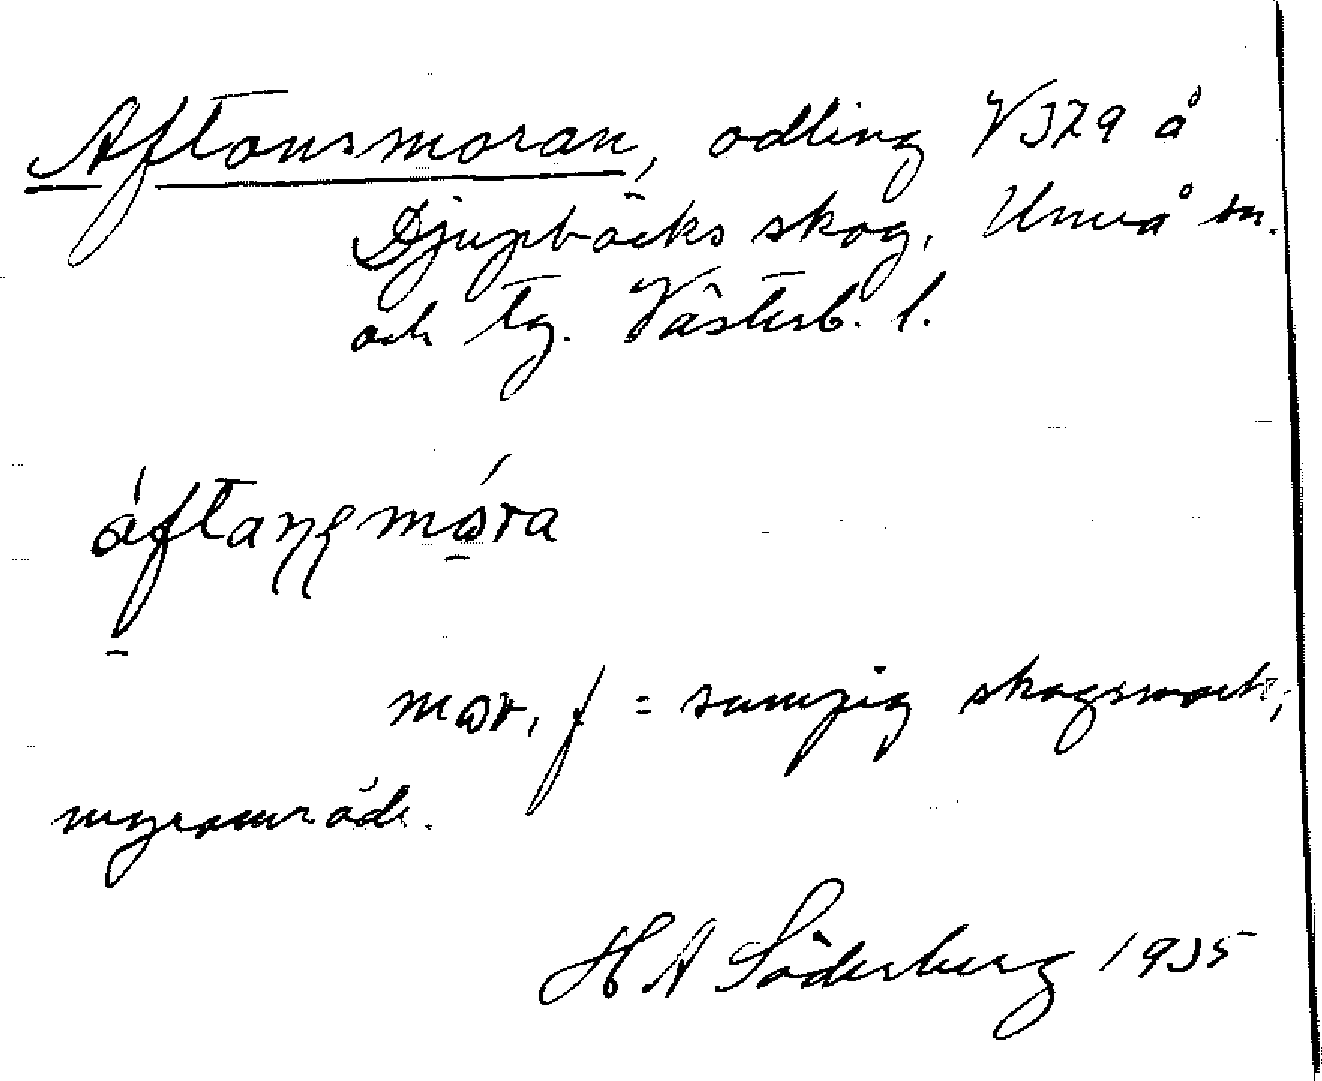 Aftonsmoran, odling V 379 å
Djupbäcks skog, Umeå sn.
och tg. Västerb. l.
mor, f = sumpig skogsmark,
myrområde.
H A Söderberg 1935